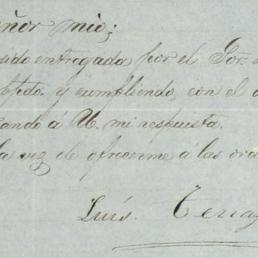 eñor mio;
sido entregada por el Sor.
y cumpliendo, con el
ando á U. mi respuesta.
la vez de ofrecerme a las
Luis Terraz